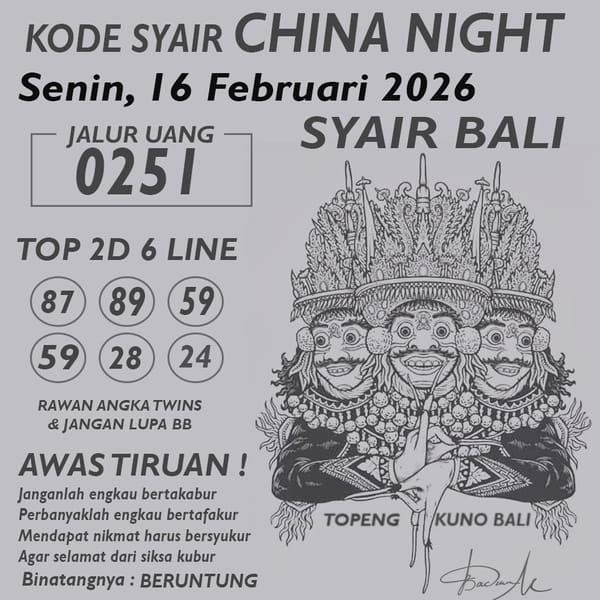 KODE SYAIR CHINA NIGHT
Senin, 16 Februari 2026
JALUR UANG
0251
SYAIR BALI
TOP 2D 6 LINE
87 89 59
59 28 24
RAWAN ANGKA TWINS
& JANGAN LUPA BB
AWAS TIRUAN !
Janganlah engkau bertakabur
Perbanyaklah engkau bertafakur
Mendapat nikmat harus bersyukur
Agar selamat dari siksa kubur
Binatangnya : BERUNTUNG
TOPENG KUNO BALI